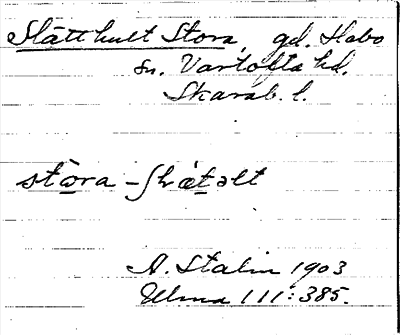 Slätthult Stora, gd. Habo
sn. Vartofta hd.
Skarab. l.
stòra - ʃlʹätəlt
A. Stalin 1903
Ulma 111:385.